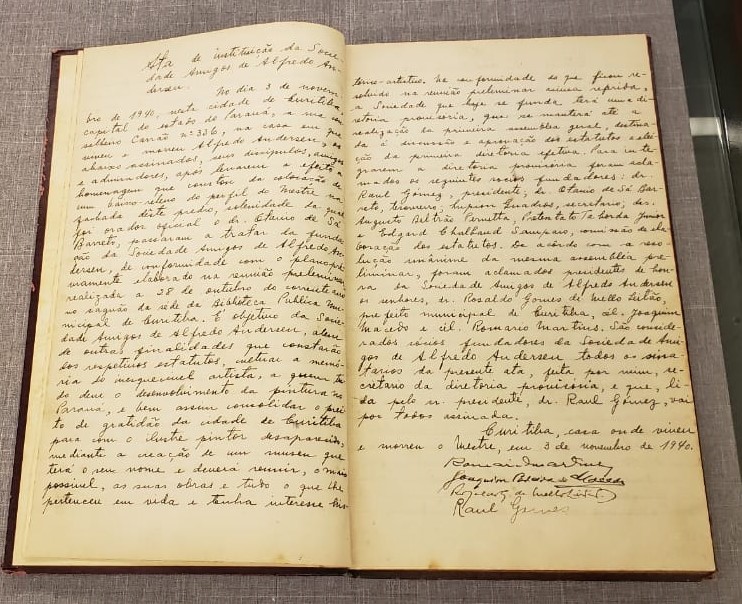 Ata de instituição da Socie-
dade Amigos de Alfredo An-
dersen.
No dia 3 de novem-
bro de 1940, nesta cidade de Curitiba,
capital do estado do Paraná, a rua con-
selheiro Carrão nº 336, na casa em que
viveu e morreu Alfredo Andersen, os
abaixo assinados, seus discipulos, amigos
e admiradores, após levarem a efeito a
homenagem que constou da colocação de
um baixo-relevo do perfil do Mestre na
fachada dêste predio, solenidade da qual
foi orador oficial o dr. Otavio de Sá
Barreto, passaram a tratar da funda-
ção da Sociedade Amigos de Alfredo An-
dersen, de conformidade com o plano pré-
viamente elaborado na reunião preliminar
realizada a 28 de outubro do corrente ano
no saguão da séde da Biblioteca Publica Mu-
nicipal de Curitiba. É objetivo da Socie-
dade Amigos de Alfredo Andersen, alem
de outras finalidades que constarão
dos respetivos estatutos, cultuar a memó-
ria do inesquecivel artista, a quem tan-
to deve o desenvolvimento da pintura no
Paraná, e bem assim consolidar o prei-
to de gratidão da cidade de Curitiba
para com o ilustre pintor desaparecido,
mediante a creação de um museu que
terá o seu nome e deverá reunir, o mais
possivel, as suas obras e tudo o que lhe
pertenceu em vida e tenha interesse his-
torico-artistico. De conformidade ao que ficou re-
solvido na reunião preliminar acima referida,
a Sociedade que hoje se funda terá uma di-
retoria provisoria, que se manterá até a
realização da primeira assembléa geral, destina-
da á discussão e aprovação dos estatutos e elei-
ção da primeira diretoria efetiva. Para inte-
grarem a diretoria provisoria foram acla-
mados os seguintes socios fundadores: dr.
Raul Gomez, presidente; dr. Otavio de Sá Bar-
reto, tesoureiro; Quadros, secretario; drs.
Augusto Beltrão Pernetta, Taborda Junior
e Edgard Chalbaud Sampaio, comissão de ela-
boração dos estatutos. De acôrdo com a reso-
lução unânime da mesma assembléa pre-
liminar, foram aclamados presidentes de hon-
ra da Sociedade Amigos de Alfredo Andersen
os senhores, dr. Rosaldo Gomes de Mello Leitão,
prefeito municipal de Curitiba, cel. Joaquim
Macedo e cel. Romario Martins. São conside-
rados sócios fundadores da Sociedade de Ami-
gos de Alfredo Andersen todos os sina-
tarios da presente ata, feita por mim, se-
cretario da diretoria provisória, e que, li-
da pelo sr. presidente, dr. Raul Gomez, vai
por todos assinada.
Curitiba, casa onde viveu
e morreu o Mestre, em 3 de novembro de 1940.
Romario Martins
Joaquim de Macedo
de Mello Leitão
Raul Gomes